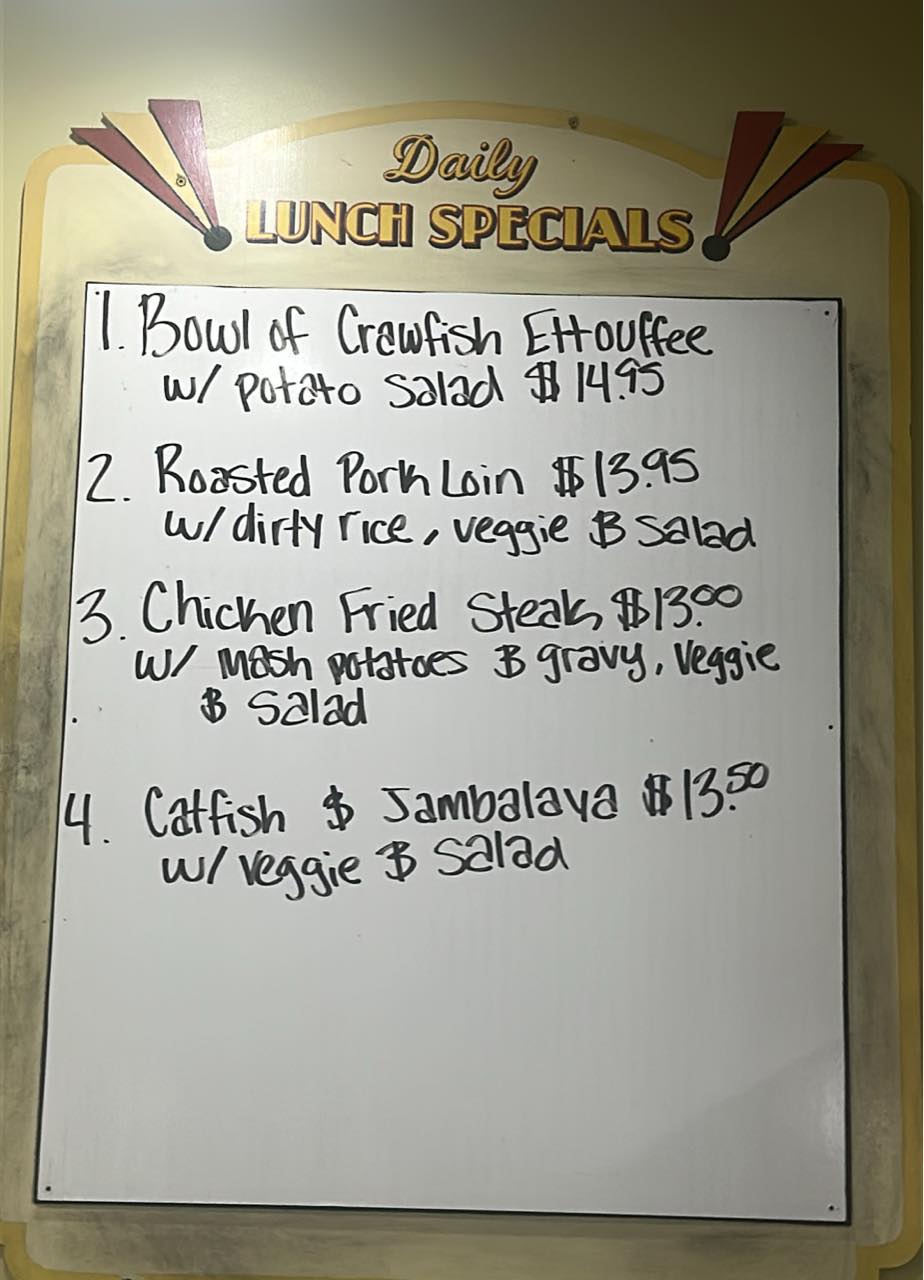 Daily
LUNCH SPECIALS
1. Bowl of Crawfish Ettouffee
w/ potato Salad $14.95
2. Roasted Pork Loin $13.95
w/ dirty rice, veggie & Salad
3. Chicken Fried Steak $13.00
w/ mash potatoes & gravy, Veggie
& Salad
4. Catfish & Jambalaya $13.50
w/ veggie & Salad